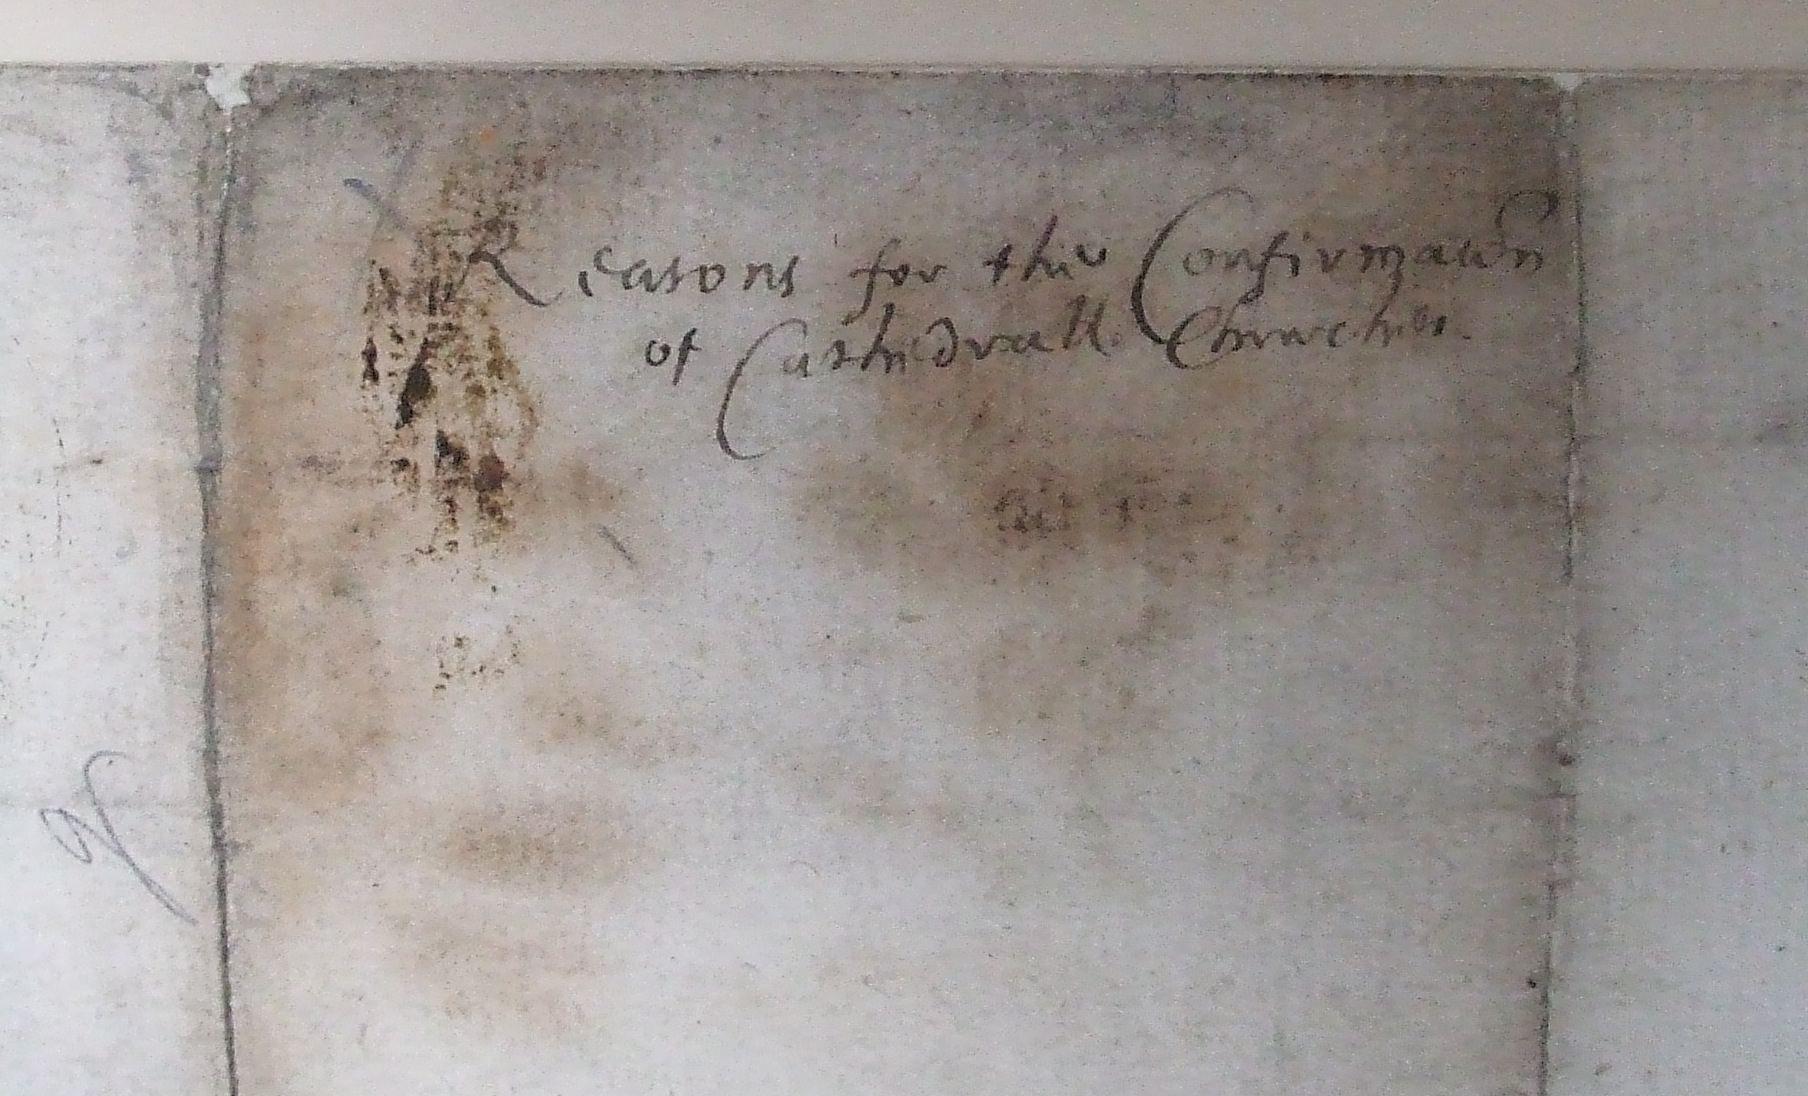 Reasons for the Confirmac̃on
of Cathedrall Churches.